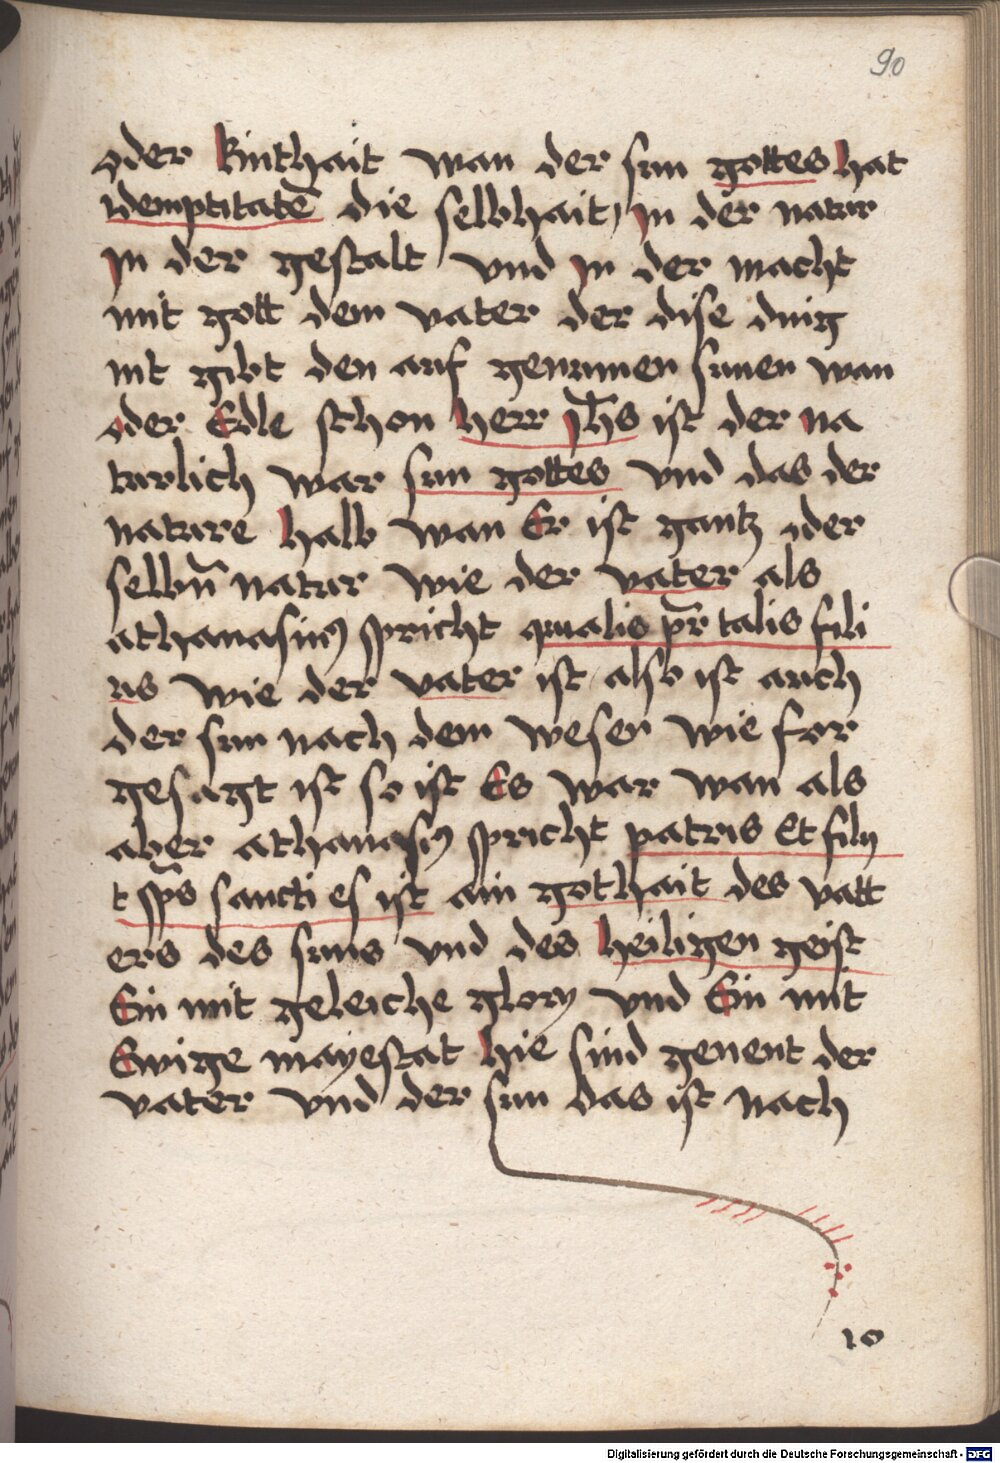 90
oder kinthait wan der sun gottes hat
idemptitatē die selbhait / in der natur
in der gestalt / vnd in der macht
mit gott dem vater der dise ding
nit gibt den auf genumen sunen wan
oder Edle schon herr jhs ist der na
turlich war sun gottes vnd das der
nature halb wan Er ist gantz oder
selbn̄ natur wie der vater als
athanasius spricht qualis pr̄ talis fili
us wie der vater ist / also ist auch
der sun nach dem wesen wie for
gesagt ist so ist Es war wan als
aber athanasius spricht patris Et filij
t sps̄ sancti es ist ain gothait des vatt
ers des suns vnd des heiligen geist
Ein mit geleiche glory vnd Ein mit
Ewige mayestat hie sind genent der
vater vnd der sun das ist nach
10
Digitalisierung gefördert durch die Deutsche Forschungsgemeinschaft - DFG